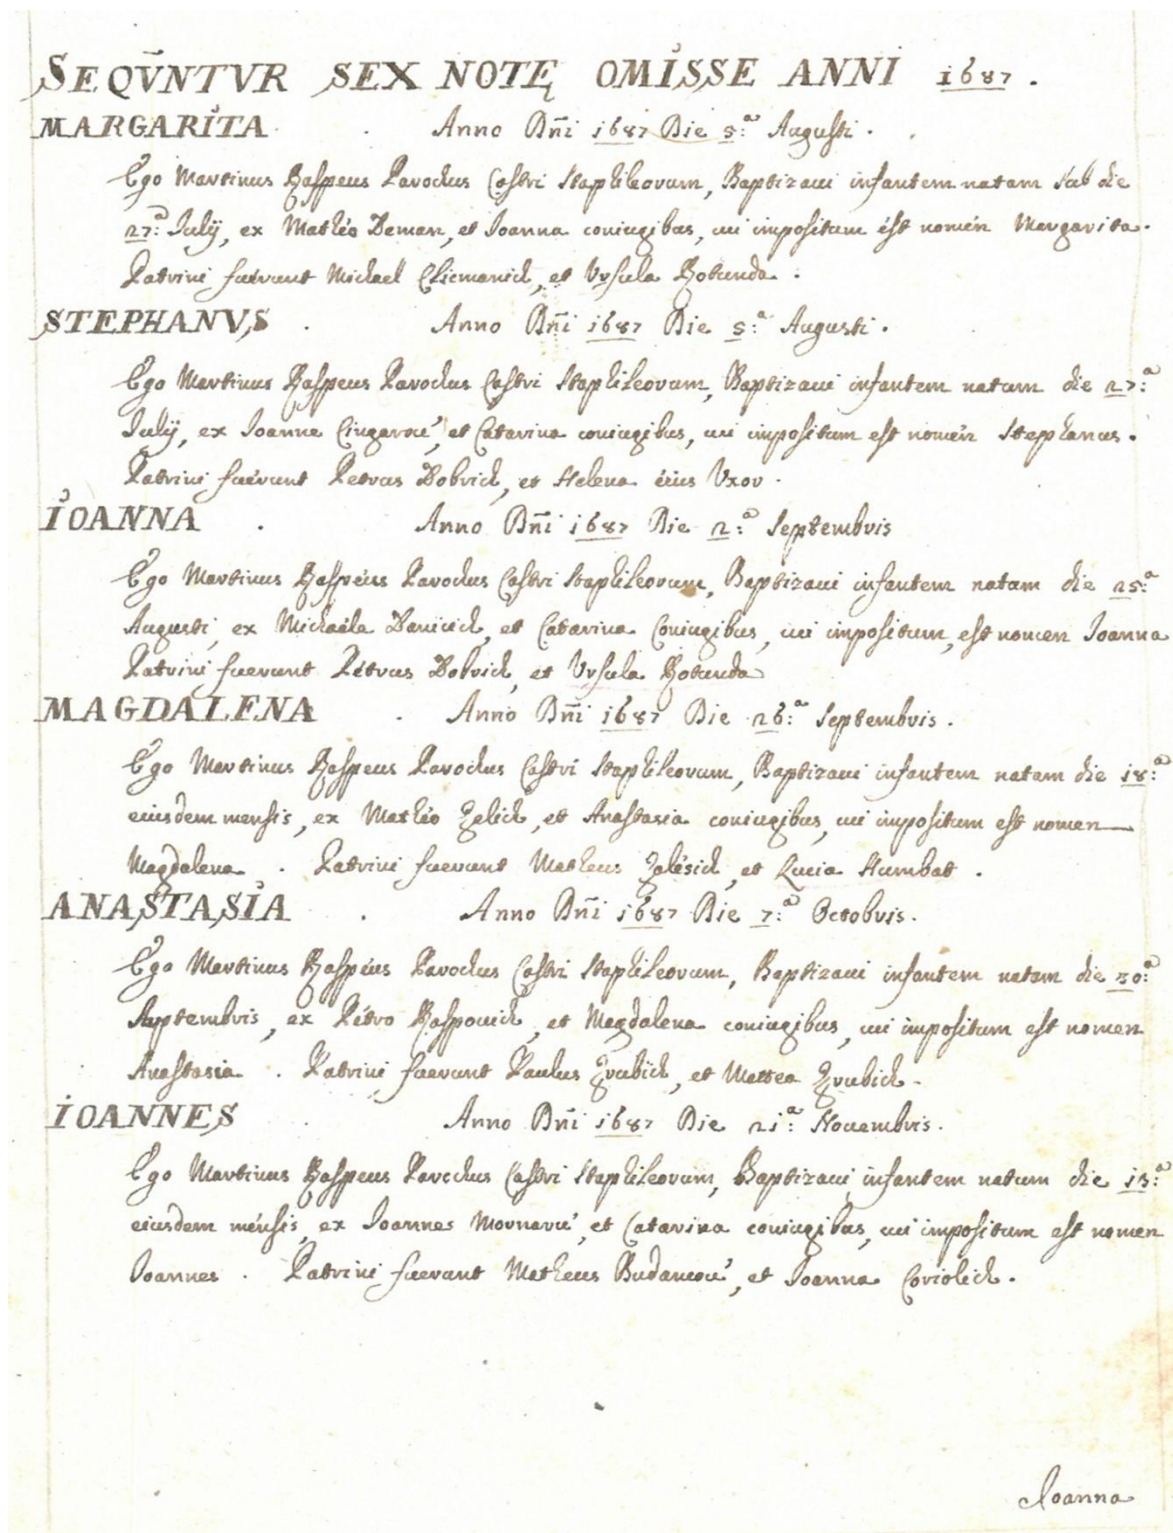 SEQŪNTVR SEX NOTĘ OMISSE ANNI 1687.
MARGARITA. Anno Dñi 1687 Die 5:ª Augusti.
Ego Martinus Raspeus Parochus Castri Staphileorum, Baptizaui infantem natam sub die
27:ª Julij, ex Mathéo Deman, et Joanna coniugibus, cui impositum ést nomén Margarita.
Patrini fuérunt Michael Clicmanich, et Vrsula Rotunda.
STEPHANVS. Anno Dñi 1687 Die 5:ª Augusti.
Ego Martinus Raspeus Parochus Castri Staphileorum, Baptizaui infantem natum die 27:ª
Julij, ex Joanne Cingaroú, et Catarina coniugibus, cui impositum est nomén Stephanus.
Patrini fuérunt Petrus Dobrich, et Helena éius Vxor.
IOANNA. Anno Dñi 1687 Die 2:ª Septembris
Ego Martinus Raspéus Parochus Castri Staphileorum, Baptizaui infantem natam die 25:ª
Augusti, ex Michaéle Danicich, et Catarina Coniugibus, cui impositum, est nomen Joanna
Patrini fuerunt Pétrus Dobrich, et Vrsula Rotunda
MAGDALENA. Anno Dñi 1687 Die 26:ª Septembris.
Ego Martinus Raspeus Parochus Castri Staphileorum, Baptizaui infantem natam die 18:ª
eiusdem mensis, ex Mathéo Zelich, et Anastasia coniugibus, cui impositum est nomen
Magdalena. Patrini fuerunt Matheus Zalésich, et Lucia Humbat.
ANASTASIA. Anno Dñi 1687 Die 7:ª Octobris.
Ego Martinus Raspéus Parochus Castri Staphileorum, Baptizaui infantem natam die 30:ª
Septembris, ex Pétro Raspouich, et Magdalena coniugibus, cui impositum est nomen
Anastasia. Patrini fuerunt Paulus Zrubich, et Mattea Zrubich.
IOANNES. Anno Dñi 1687 Die 21:ª Nouembris.
Ego Martinus Raspeus Parochus Castri Staphileorum, Baptizaui infantem natum die 13:ª
eiusdem ménsis, ex Joannes Mornaru', et Catarina coniugibus, cui impositum est nomen
Joannes. Patrini fuerunt Matheus Budancou', et Joanna Coriolich.
Joanna